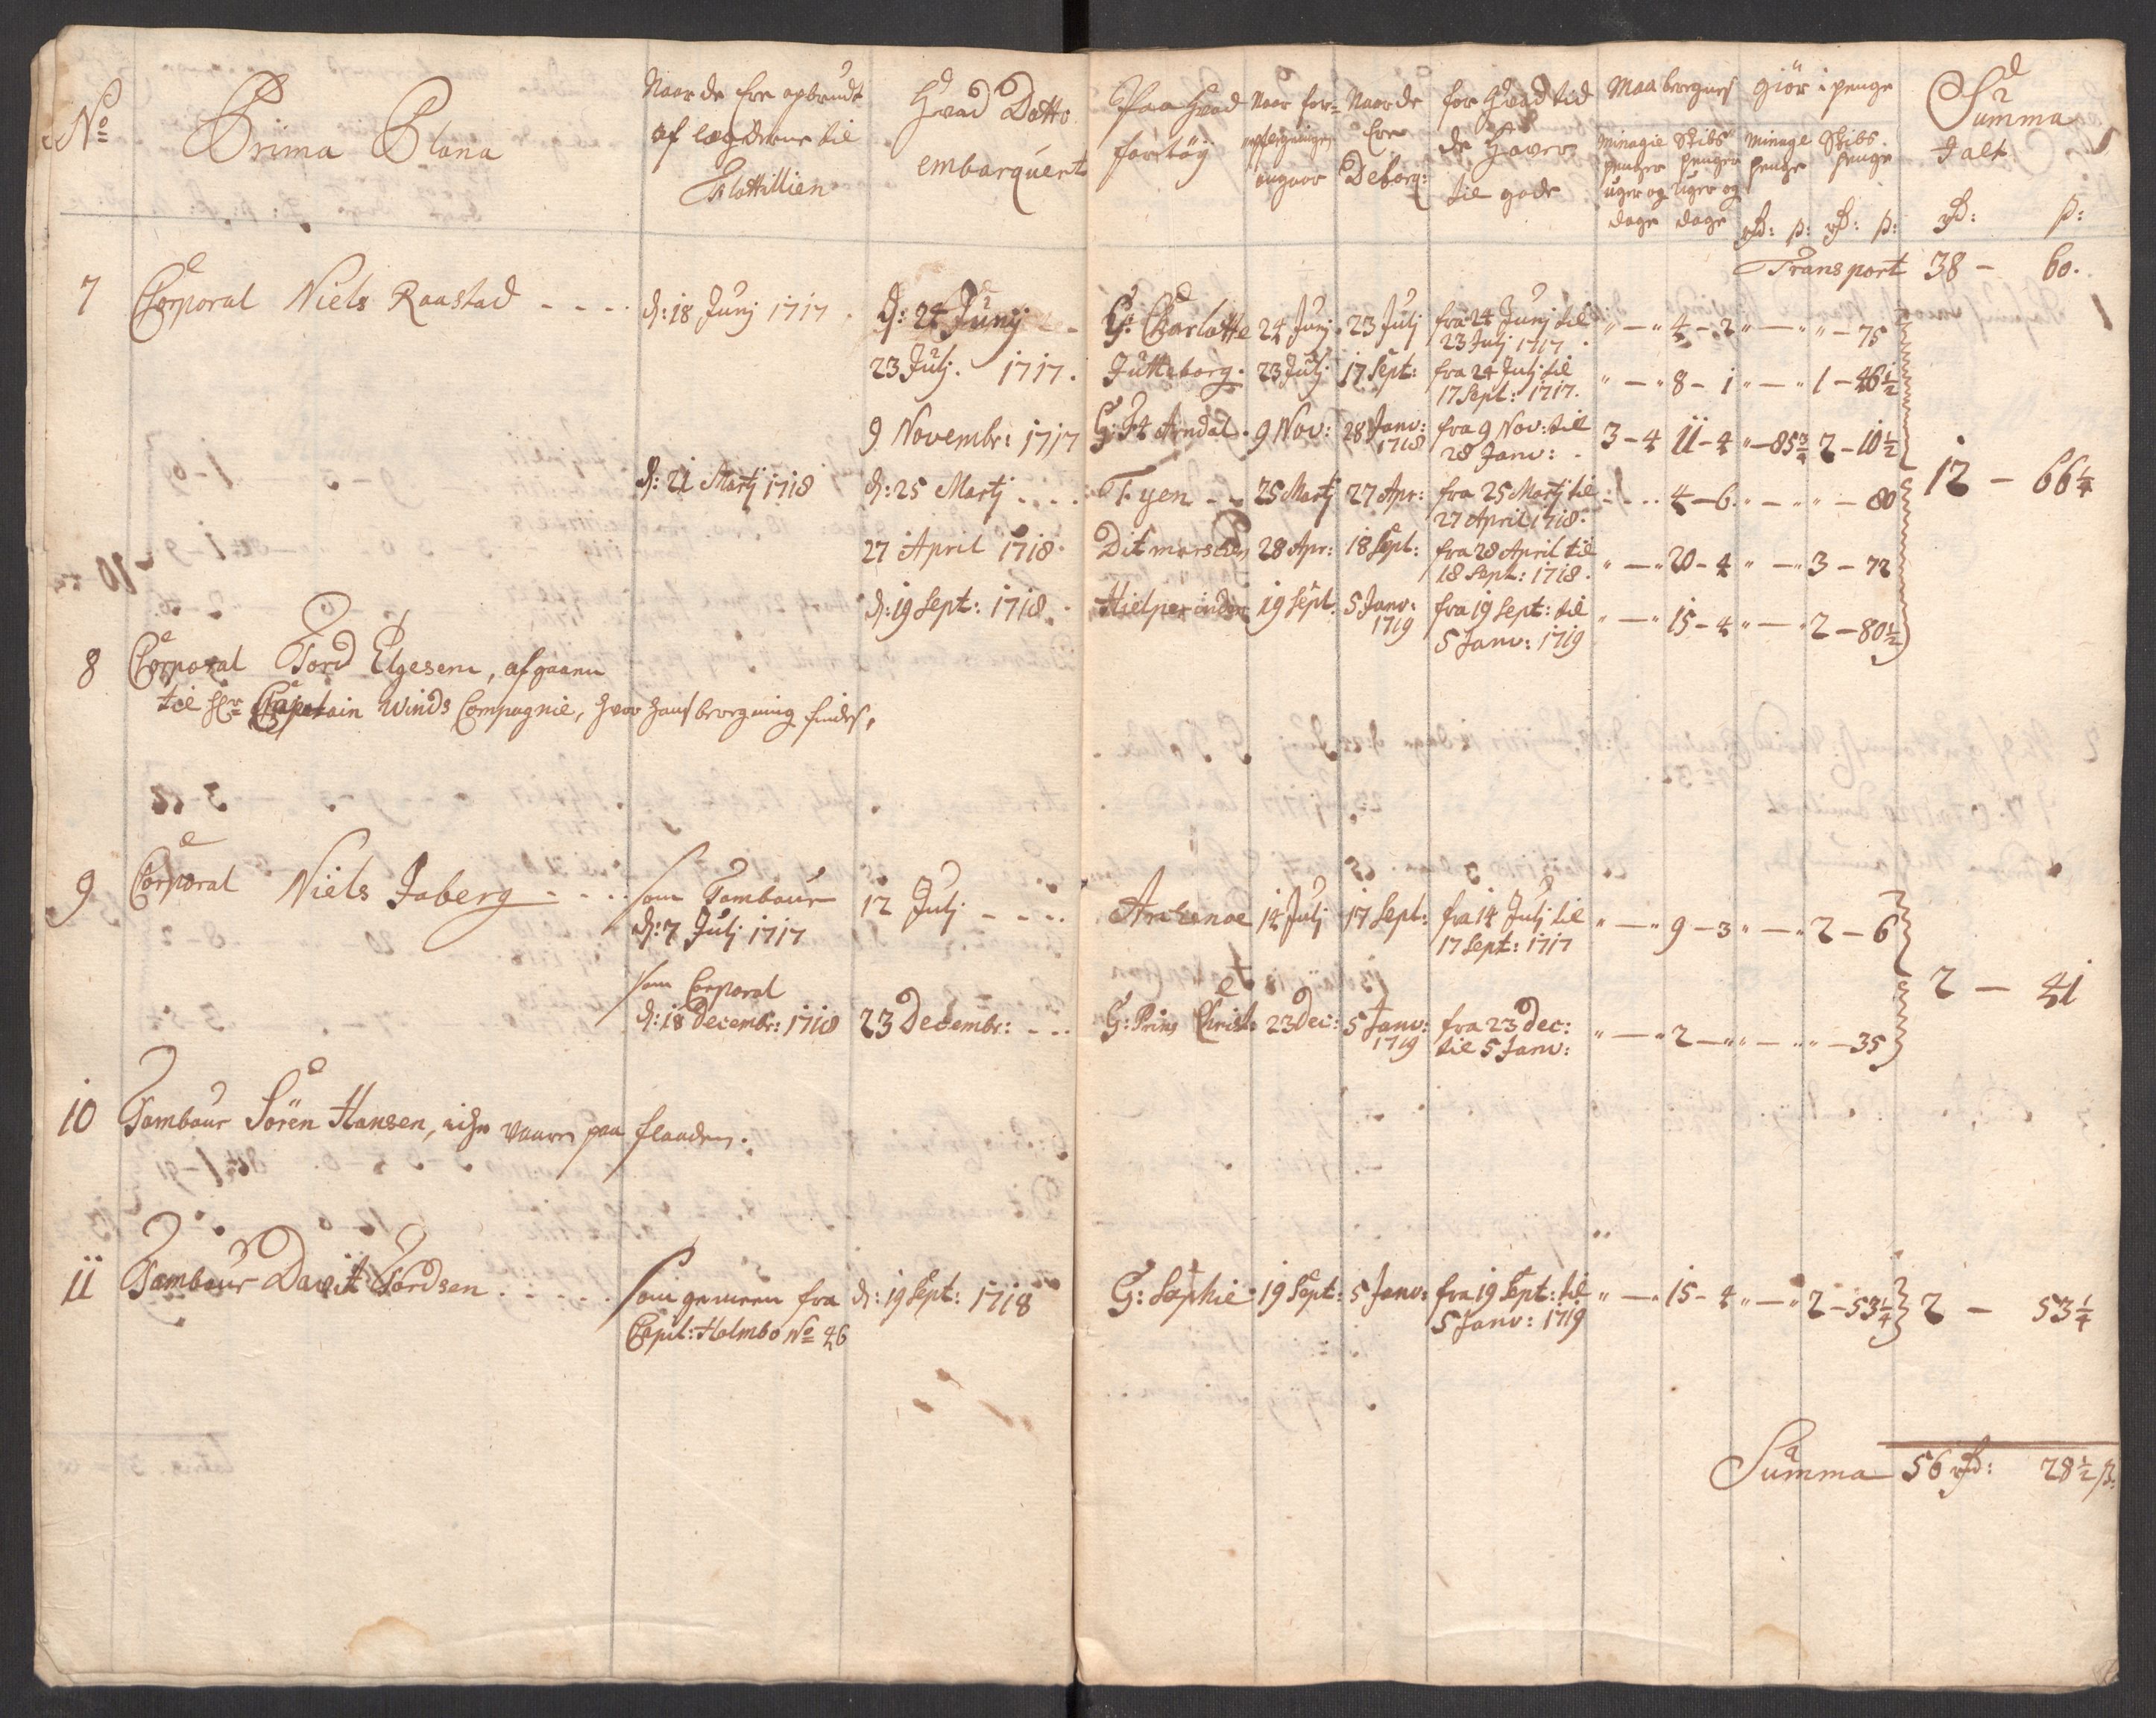 No
Prima Plana
Naar de Ere opbrudt
af lægderne til
Flottillien
Hvad Datto
embarquert
Paa Hvad
fartöy
Naar for-
angaar
Naar de
Ere
Debarq:
for Hvad tid
de Haver
til gode
Maa beregnes
Minagie
penger
uger og
dage
Skibs
penger
Uger og
dage
giör i penge
Minage
Penge
rd: ß:
Skibs
Penge
rd: ß:
Summa
I alt
rd: ß:
Transport 38 - 60.
7 Corporal Niels Raastad - - - d: 18 Junj 1717. d: 24 Junij - - G: Charlotte 24 Junj. 23 Julj fra 24 Junj til
23 Julj 1717. " - " 4 - 2 " - " " - 75
23 Julj. 1717. Jutteborg. 23 Julj 17 Sept: fra 24 Julj til
17 Sept: 1717. " - " 8 - 1 " - " 1 - 46½
9 Novembr: 1717 G: Fr Arndal. 9 Nov: 28 Janv:
1718 fra 9 Nov: til
28 Janv: 3 - 4 11 - 4 " - 85¾ 2 - 10½
d: 21 Martj 1718 d: 25 Martj - - - Tyen - - 25 Martj 27 Apr: fra 25 Martj til
27 April 1718. 4 - 6 " - " " - 80
12 - 66¼
27 April 1718. Ditmarschen 28 Apr: 18 Sept: fra 28 April til
18 Sept: 1718. " - " 20 - 4 " - " 3 - 72
d: 19 Sept: 1718. Hielperinden 19 Sept. 5 Janv:
1719 fra 19 Sept: til
5 Janv: 1719 " - " 15 - 4 " - " 2 - 80½
8 Corporal Tord Elgesen, afgaaen
til Hr Capetain Winds Compagnie, hvor hans beregning findes,
9 Corporal Niels Jaberg - - - som Tambour
d: 7 Julj 1717 12 Julj - - - Archenoe 14 Julj 17 Sept: fra 14 Julj til
17 Sept: 1717 " - " 9 - 3 " - " 2 - 6
som Corporal
d: 18 Decembr: 1718 23 Decembr: - - - G: Prins Christ: 23 Dec: 5 Janv:
1719 fra 23 Dec:
til 5 Janv: " - " 2 - " " - " " - 35
2 - 41
10 Tambour Sören Hansen, icke vaaren paa flaaden.
11 Tambour Davit Tordsen - - - - Som gemeen fra
Capit: Holmbo No 46 d: 19 Sept: 1718 G: Sophie. 19 Sept: 5 Janv: fra 19 Sept: til
5 Janv: 1719 " - " 15 - 4 " - " 2 - 53¼ 2 - 53¼
Summa 56 rd: 28½ ß.